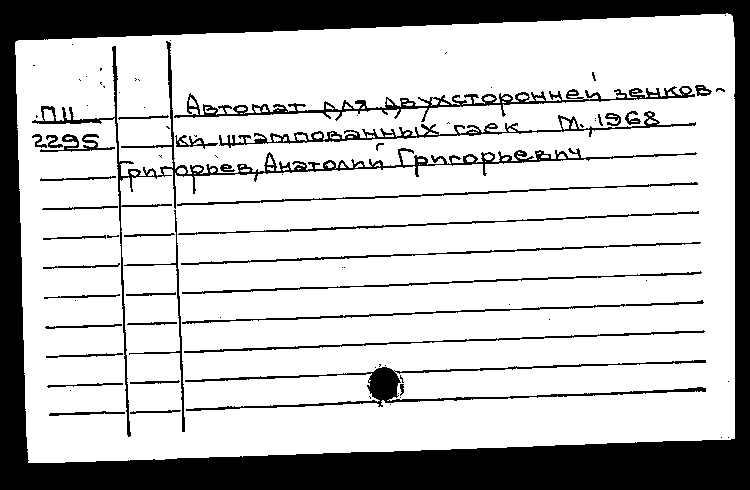 П11 Автомат для двухсторонней зенков-
2295 ки штампованных гаек М., 1968
Григорьев, Анатолий Григорьевич.